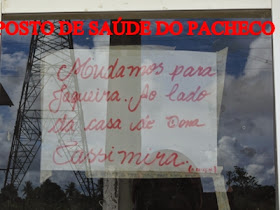 POSTO DE SAÚDE DO PACHECO
Mudamos para
Jaqueira. Ao lado
da casa de Dona
Cassimira.